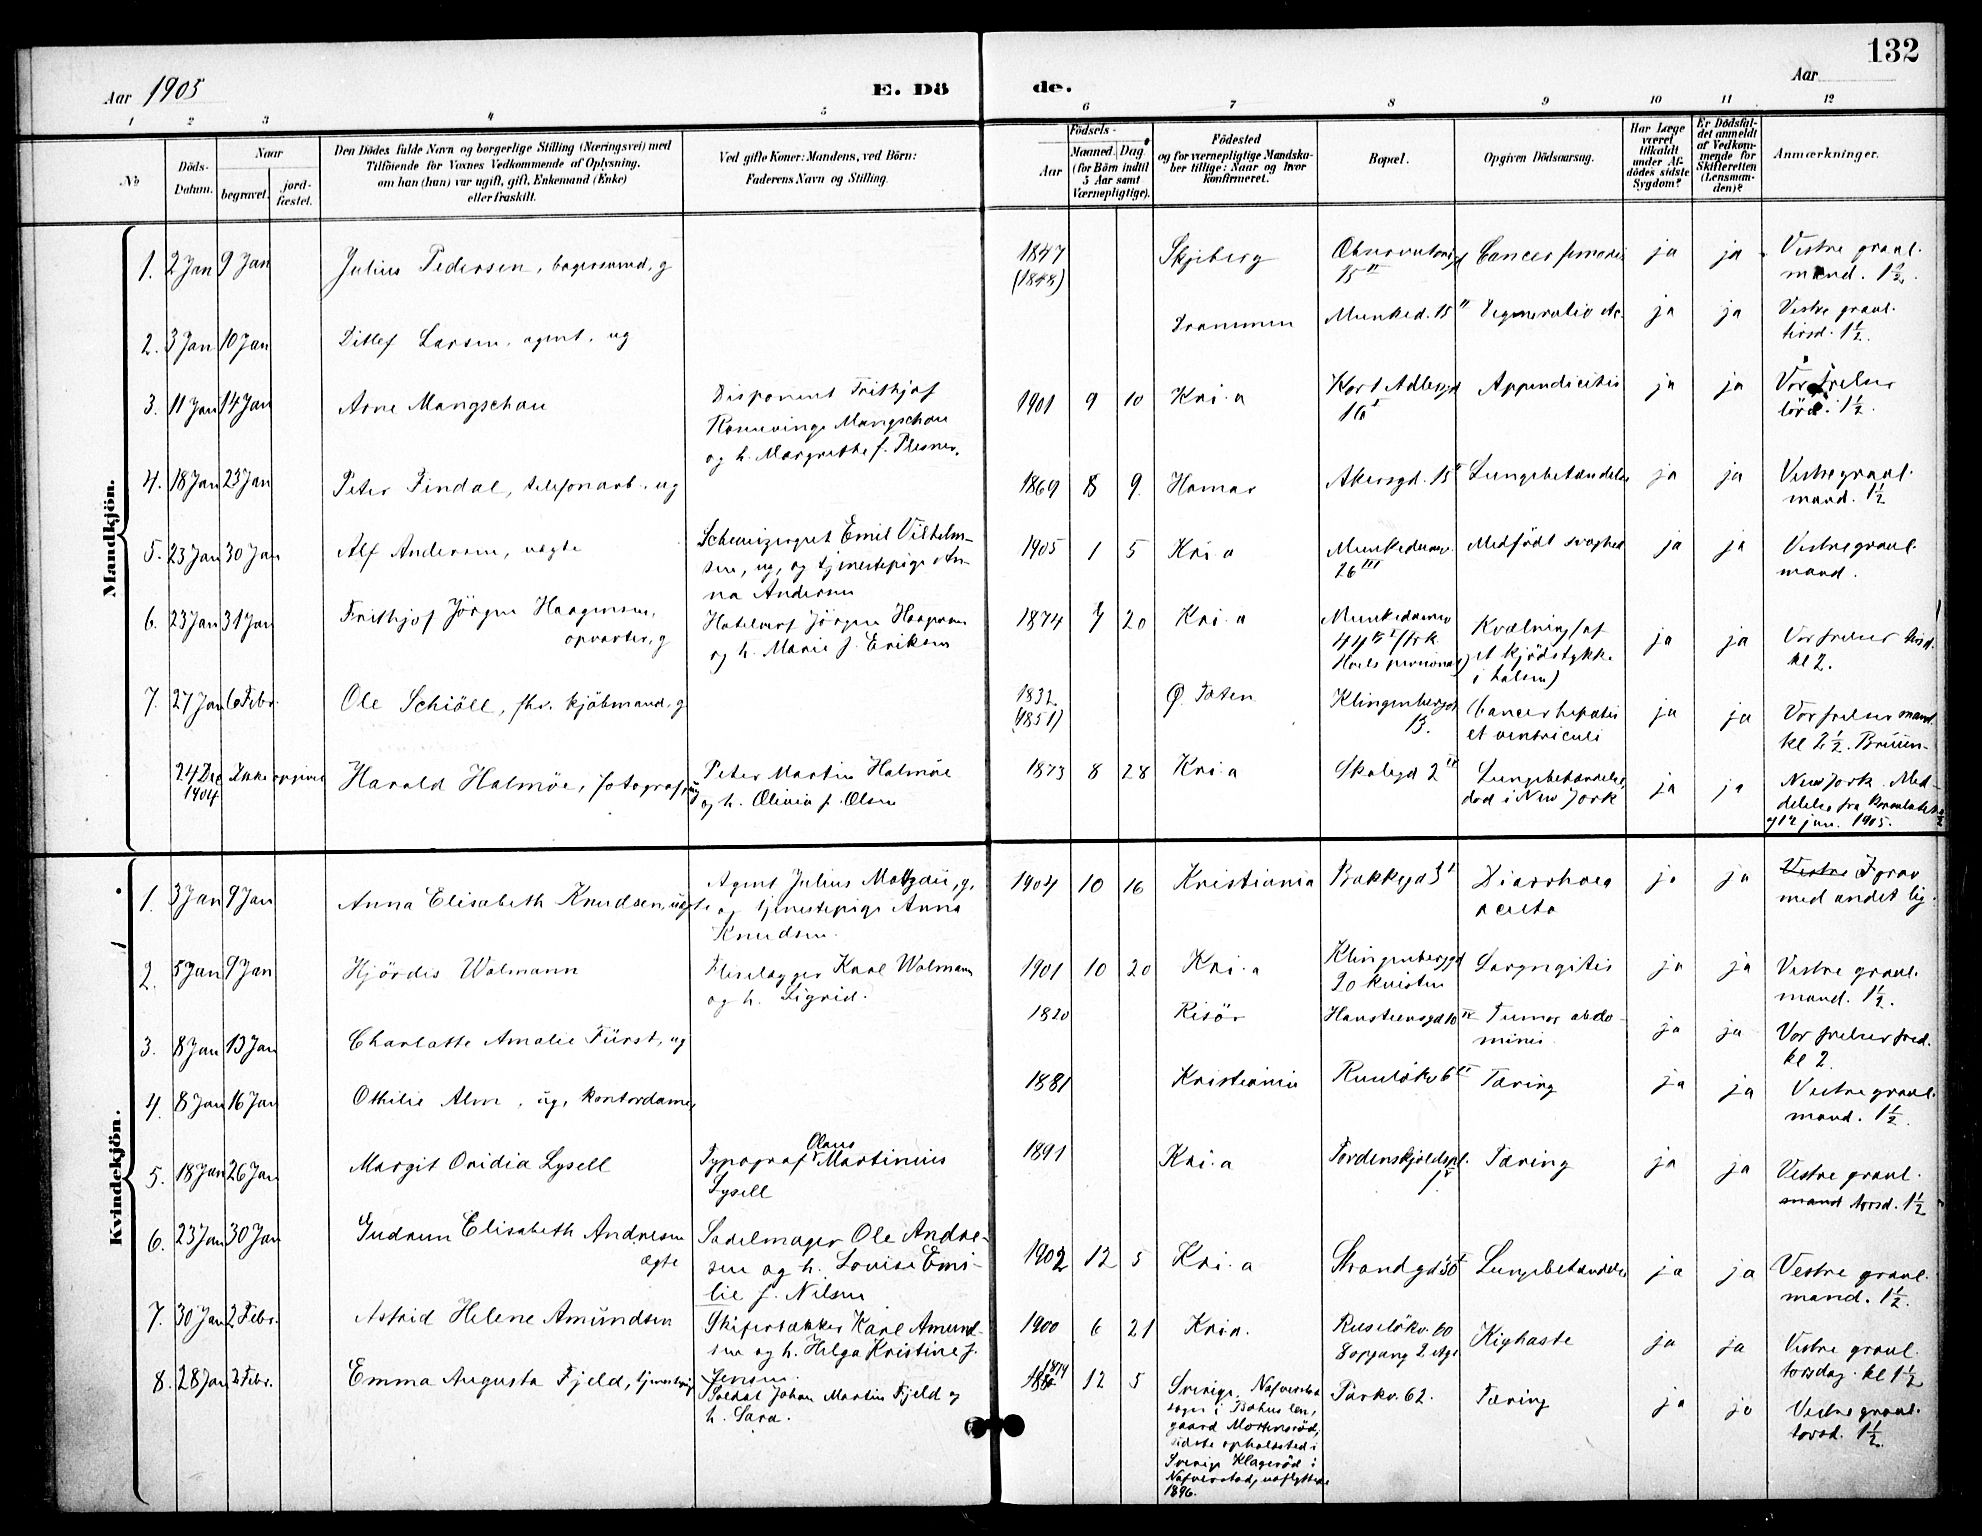 132
Aar 1905
E. Dö
de.
Aar
1 2 3 4 5 6 7 8 9 10 11 12
No
Döds-Datum.
Naar
begravet.
jordfæstet.
Den Dödes fulde Navn og borgerlige Stilling (Næringsvei) med
Tilföiende for Voxnes Vedkommende af Oplysning,
om han (hun) var ugift, gift, Enkemand (Enke)
eller fraskilt.
Ved gifte Koner: Mandens, ved Börn:
Faderens Navn og Stilling.
Födsels-
Aar
Maaned. Dag.
(for Börn indtil
5 Aar samt
Værnepligtige).
Födested
og for værnepligtige Mandska-
ber tillige: Naar og hvor
konfirmeret.
Bopæl.
Opgiven Dödsaarsag.
Har Læge
været
tilkaldt
under Af-
dödes sidste
Sygdom?
Er Dödsfal-
det anmeldt
af Vedkom-
mende for
Skifteretten
(Lensman-
den)?
Anmærkninger.
Mandkjön.
1. 2 Jan 9 Jan Julius Pedersen, bogersvend, g 1847 (1848) Skjeberg Observatorigd 15 II Cancer femoris ja ja Vestre gravl. mand. 1½.
2. 3 Jan 10 Jan Ditlef Larsen, agent, ug Drammen Munked. 15 II Degeneratio ja ja Vestre gravl. tirsd. 1½.
3. 11 Jan 14 Jan Arne Mangschou Disponent Frithjof Mangschou og h. Margrethe f. Plesner. 1901 9 10 Kri.a Kort Adlersgd 16 I Appendicitis ja ja Vor Frelser lörd. 1½.
4. 18 Jan 23 Jan Peter Findal, telefonarb. ug 1869 8 9 Hamar Akersgd. 15 II Lungebetændelse ja ja Vestre gravl. mand. 1½
5. 23 Jan 30 Jan Alf Andersen, uægte Schweizergut Emil Vilhelmsen, ug, og tjenestepige Anna Andersen 1905 1 5 Kri a Munkedamsv. 26 III Medfödt svaghed ja ja Vestre gravl. mand.
6. 23 Jan 31 Jan Frithjof Jörgen Haagensen, opvarter, g Hotelvert Jörgen Haagensen og h. Marie f. Eriksen 1874 7 20 Kri.a Munkedamsv Kvælning (af et kjödstykke i halsen) ja ja Vor frelser tirsd. kl 2.
7. 27 Jan 6 Febr. Ole Schiöll, fhv. kjöbmand, g 1832 (1851) Ø. Toten Klingenberggd 13. Cancer hepatis et ventriculi ja ja Vor frelser mand. kl 2½.
24 Dec 1904 Ikke opgivet Harald Halmöe, fotograf, ug Peter Martin Halmöe og h. Olivia f. Olsen 1873 8 28 Kri.a Skolegd 2 II Lungebetændelse, död i New York ja ja New York. Meddelelse fra konsulatet 12 jan. 1905.
Kvindekjön.
1. 3 Jan 9 Jan Anna Elisabeth Knudsen, uægte Agent Julius Matzau, g, og tjenestepige Anna Knudsen. 1904 10 16 Kristiania Bakkegd 3 I Diarrhoea acuta ja ja Vestre I grav med andet lig.
2. 5 Jan 9 Jan Hjördis Walmann Fliselægger Karl Walmann og h. Sigrid. 1901 10 20 Kri.a Klingenberggd kvisten Laryngitis ja ja Vestre gravl. mand. 1½.
3. 8 Jan 13 Jan Charlotte Amalie Fürst, ug 1820 Risör Hansteensgd 10 IV Tumor abdominis ja ja Vor frelser fred. kl 2
4. 8 Jan 16 Jan Othilie Alm, ug, kontordame 1881 Kristiania Ruselökv 6 II Tæring ja ja Vestre gravl. mand. 1½.
5. 18 Jan 26 Jan Margit Ovidia Lysell Typograf Olaus Martinius Lysell 1891 Kri.a Tordenskjoldspl. 1 V Tæring ja ja Vestre gravl. mand torsd. 1½
6. 23 Jan 30 Jan Gudrun Elisabeth Andresen ægte Sadelmager Ole Andresen og h. Lovise Emilie f. Nilsen 1902 12 5 Kri.a Strandgd 30 I Lungebetændelse ja ja Vestre gravl. mand. 1½.
7. 30 Jan 2 Febr. Astrid Helene Amundsen Skifertækker Karl Amundsen og h. Helga Kristine f. Jensen. 1900 6 21 Kria. Ruselökv. 60 opgang 2 etg. Kighoste ja ja Vestre gravl. torsdag kl 1½
8. 28 Jan 2 Febr. Emma Augusta Fjeld, tjenestepig Soldat Johan Martin Fjeld og h. Sara. 1874 12 5 Sverige, Nafverstad sogn i Bohus len, gaard Mortensröd, sidste opholdsted i Sverige Klageröd i Nafverstad, udflyttede 1896. Parkv. 62. Tæring ja ja Vestre gravl. torsd. 1½.